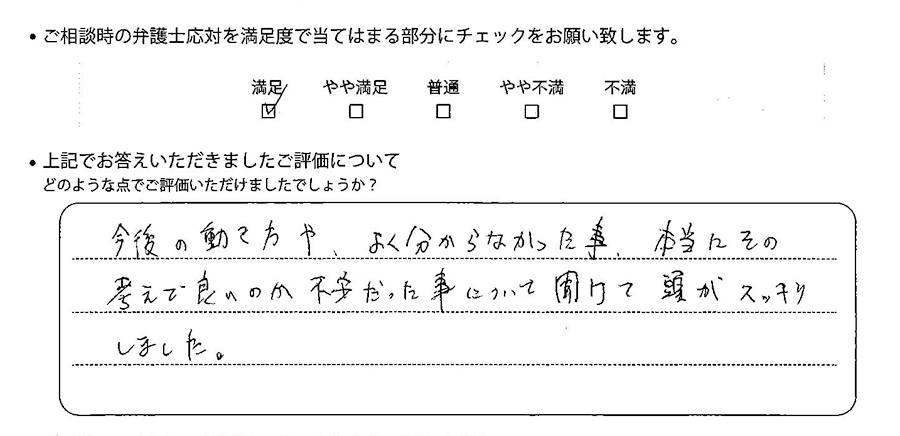 • ご相談時の弁護士応対を満足度で当てはまる部分にチェックをお願い致します。
満足 やや満足 普通 やや不満 不満
☑ □ □ □ □
• 上記でお答えいただきましたご評価について
どのような点でご評価いただけましたでしょうか?
今後の動て方や、よく分からなかった事、本当にその
考えで良いのか不安だった事について聞けて頭がスッキリ
しました。